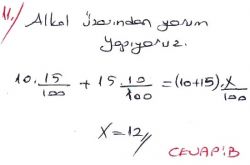 11. Alkol üzerinden yorum
yapıyoruz.
10. 15/100 + 15. 10/100 = (10+15). x/100
X = 12 //
CEVAP: B